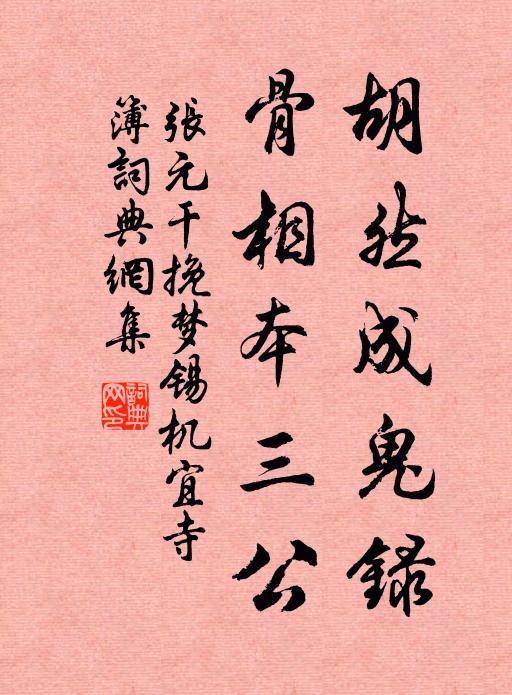 胡然成鬼録
骨相本三公
張元干挽梦锡机宜寺
簿詞典網集
詞典網印